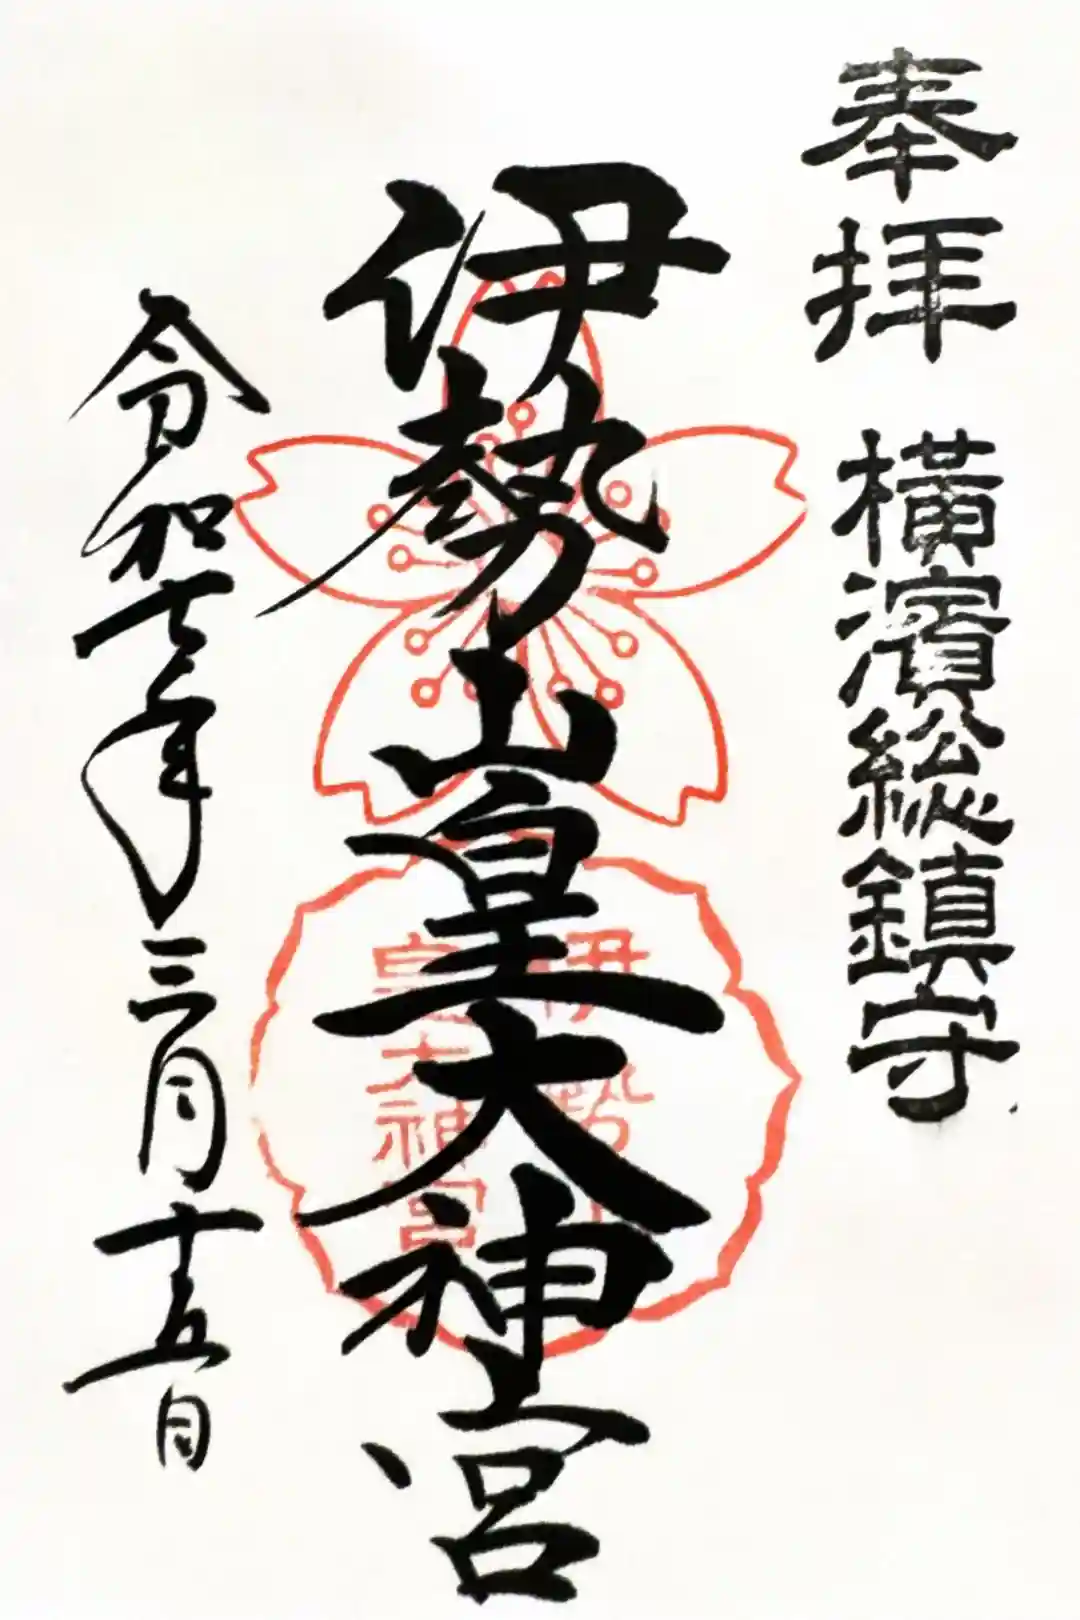 奉拝 橫濱総鎮守
伊勢山皇大神宮
伊勢山
皇大神宮
令和七年三月十五日